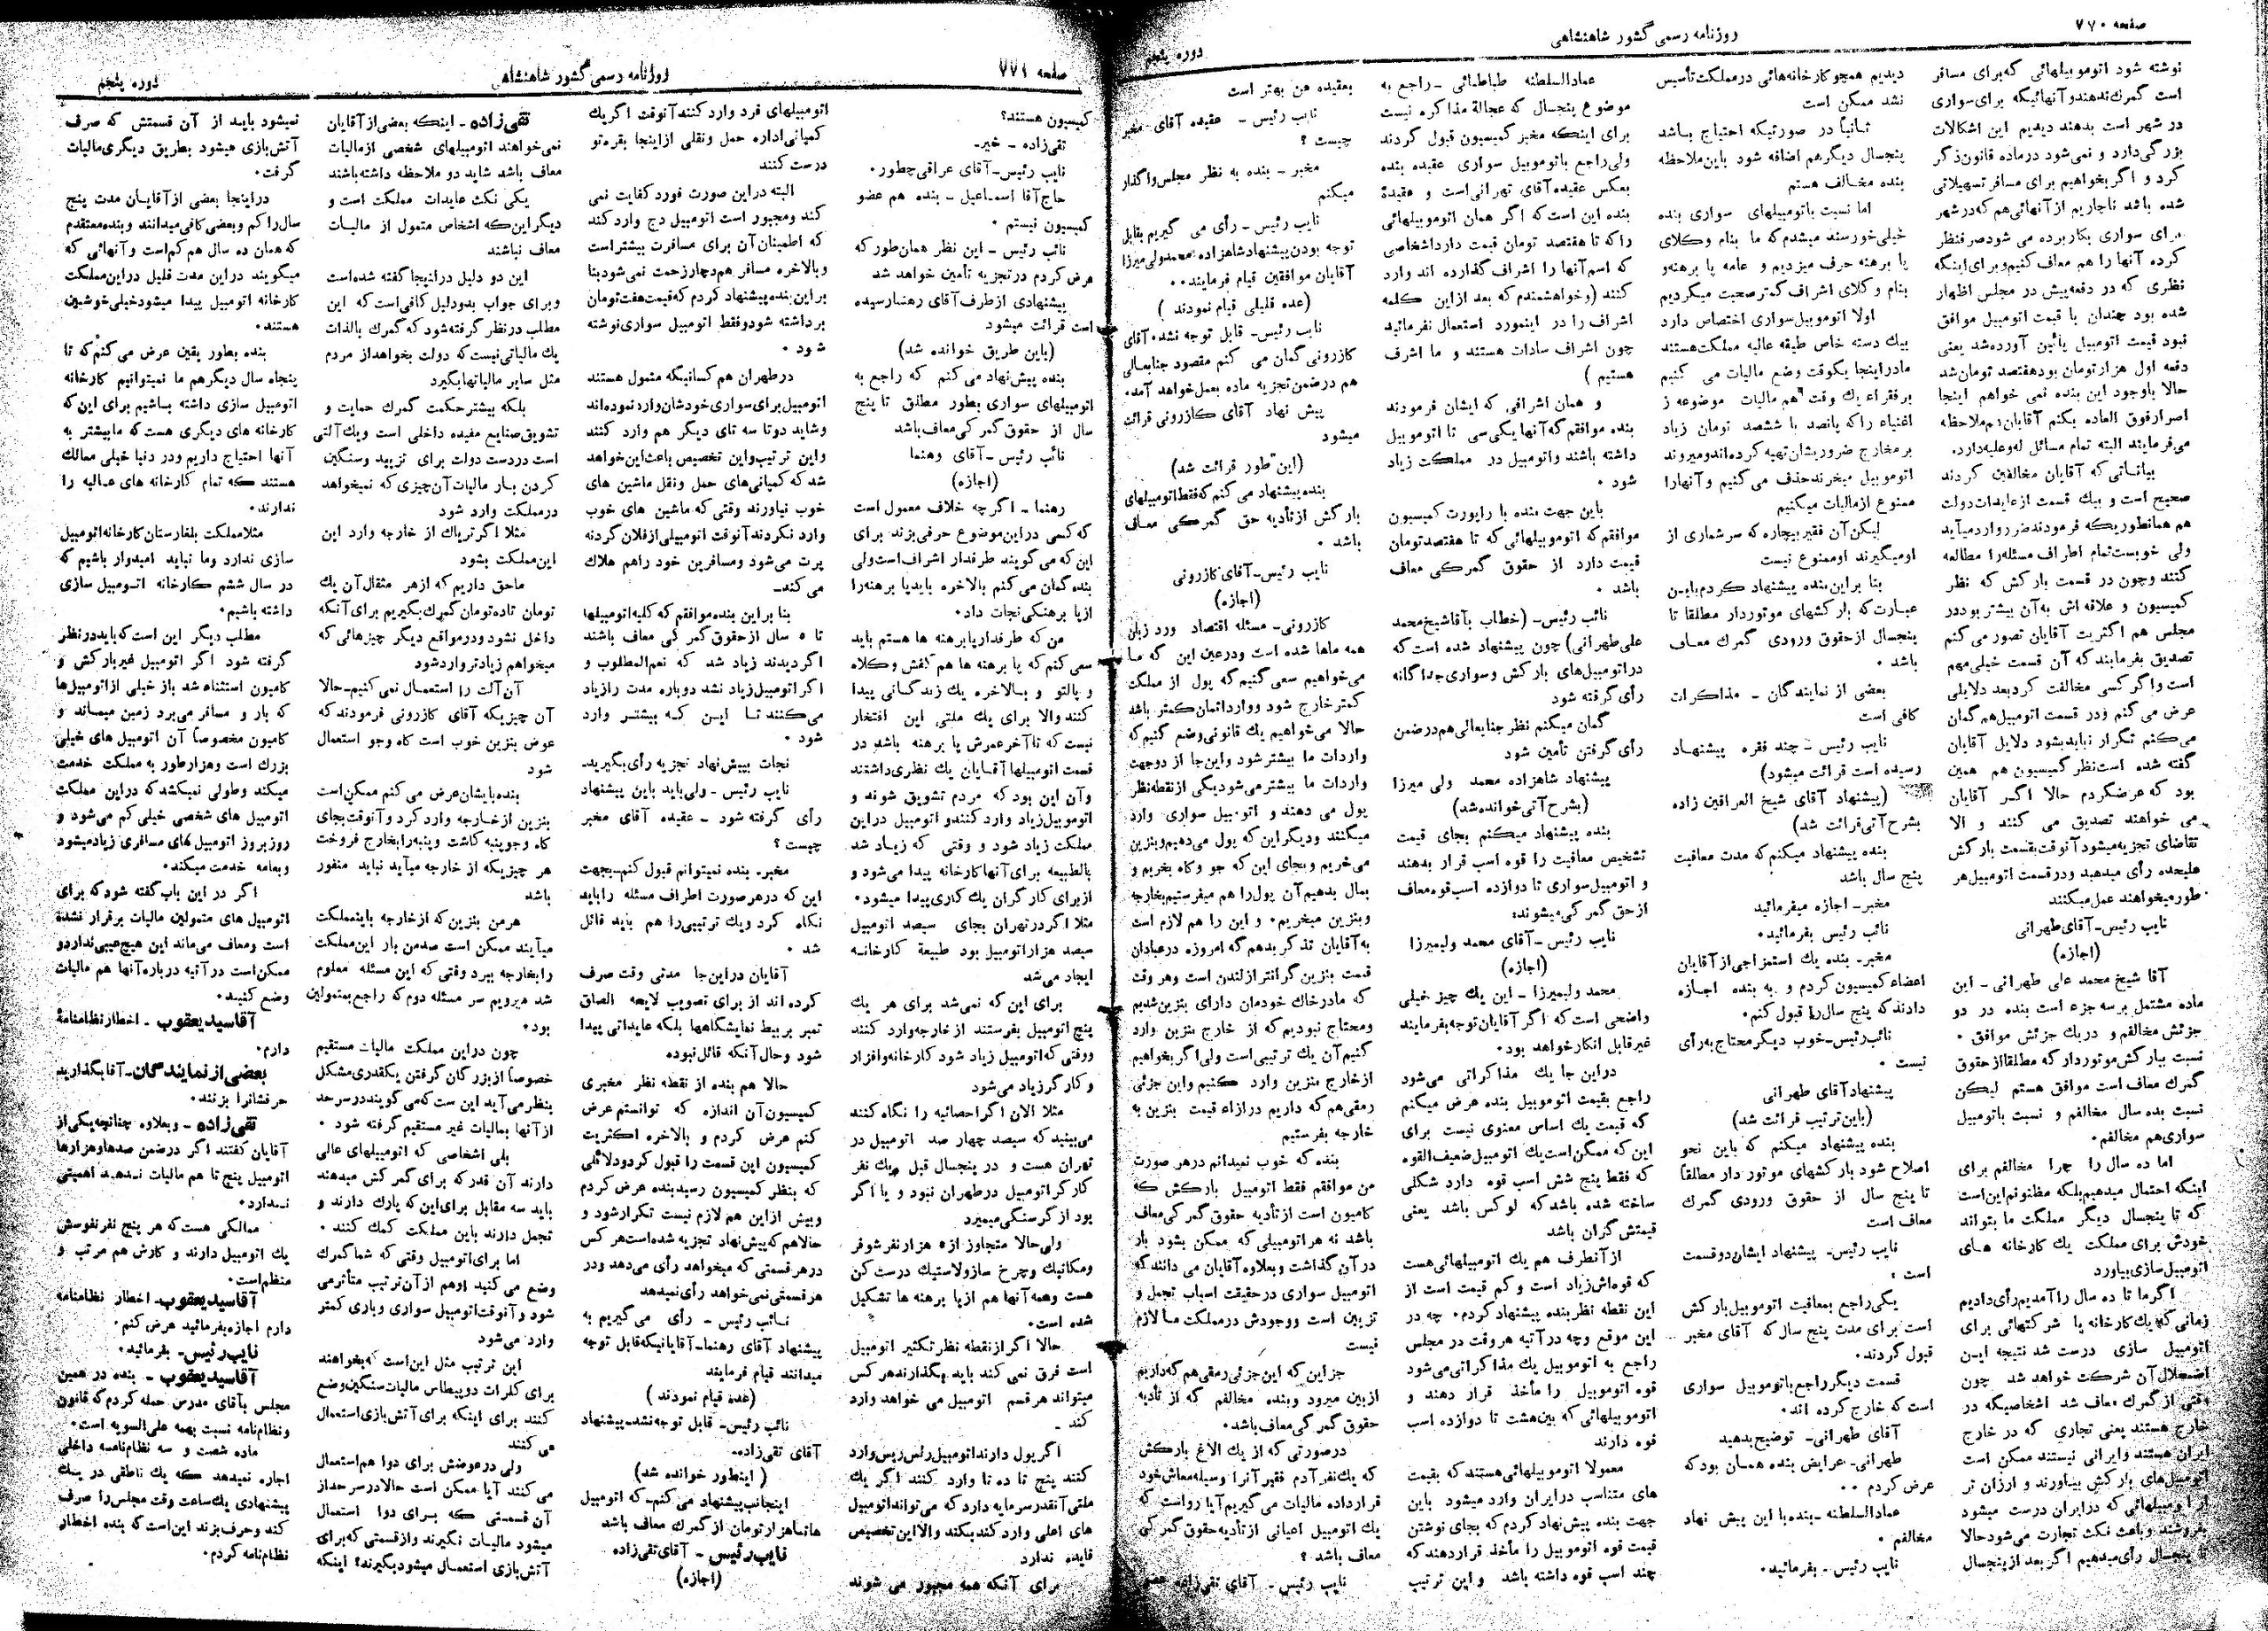 صفحه ۷۷۰
روزنامه رسمی کشور شاهنشاهی
دوره پنجم
نوشته شود اتوموبیلهائی که برای مسافر
است گمرک ندهند و آنهائیکه برای سواری
در شهر است بدهند دیدیم این اشکالات
بزرگی دارد و نمی‌شود در ماده قانون ذکر
کرد و اگر بخواهیم برای مسافر تسهیلاتی
شده باشد ناچاریم از آنهائی هم که در شهر
برای سواری بکار برده می شود صرفنظر
کرده آنها را هم معاف کنیم و برای اینکه
نظری که در دفعه پیش در مجلس اظهار
شده بود چندان با قیمت اتومبیل موافق
نبود قیمت اتومبیل پائین آورده شد یعنی
دفعه اول هزار تومان بود هفتصد تومان شد
حالا باوجود این بنده نمی خواهم اینجا
اصرار فوق العاده بکنم آقایان هم ملاحظه
می‌فرمایند البته تمام مسائل له و علیه دارد.
بیاناتی که آقایان مخالفین کردند
صحیح است و بیک قسمت از عایدات دولت
هم همانطوریکه فرمودند ضرر وارد میآید
ولی خوبست تمام اطراف مسئله را مطالعه
کنند و چون در قسمت بارکش که نظر
کمیسیون و علاقه اش به آن بیشتر بود در
مجلس هم اکثریت آقایان تصور می کنم
تصدیق بفرمایند که آن قسمت خیلی مهم
است و اگر کسی مخالفت کرد بعد دلایلی
عرض می کنم و در قسمت اتومبیل هم گمان
می‌کنم تکرار نباید بشود دلایل آقایان
گفته شده است نظر کمیسیون هم همین
بود که عرض کردم حالا اگر آقایان
می خواهند تصدیق می کنند و الا
تقاضای تجزیه میشود آنوقت بقسمت بارکش
علیحده رأی میدهید و در قسمت اتومبیل هر
طور میخواهند عمل میکنند
نایب رئیس - آقای طهرانی
(اجازه)
آقا شیخ محمد علی طهرانی - این
ماده مشتمل بر سه جزء است بنده در دو
جزئش مخالفم و در یک جزئش موافق .
نسبت ببارکش موتوردار که مطلقا از حقوق
گمرک معاف است موافق هستم لیکن
نسبت بده سال مخالفم و نسبت باتومبیل
سواری هم مخالفم.
اما ده سال را چرا مخالفم برای
اینکه احتمال میدهیم بلکه مظنونم این است
که تا پنجسال دیگر مملکت ما بتواند
خودش برای مملکت یک کارخانه های
اتومبیل سازی بیاورد
اگر ما تا ده سال را آمدیم رأی دادیم
زمانی که یک کارخانه یا شرکتهائی برای
اتومبیل سازی درست شد نتیجه این
اضمحلال آن شرکت خواهد شد چون
وقتی از گمرک معاف شد اشخاصیکه در
خارج هستند یعنی تجاری که در خارج
ایران هستند و ایرانی نیستند ممکن است
اتومبیل‌های بارکش بیاورند و ارزان تر
از اتومبیلهائی که در ایران درست میشود
بفروشند و باعث نکث تجارت می‌شود حالا
تا پنجسال رأی میدهیم اگر بعد از پنجسال
دیدیم همچو کارخانه‌هائی در مملکت تأسیس
نشد ممکن است
ثانیاً در صورتیکه احتیاج باشد
پنجسال دیگر هم اضافه شود باین ملاحظه
بنده مخالف هستم
اما نسبت باتومبیلهای سواری بنده
خیلی خورسند میشدم که ما بنام وکلای
پا برهنه حرف میزدیم و عامه پا برهنه و
بنام وکلای اشراف کمتر صحبت میکردیم
اولا اتوموبیل سواری اختصاص دارد
بیک دسته خاص طبقه عالیه مملکت هستند
ما در اینجا یکوقت وضع مالیات می کنیم
بر فقراء یک وقت هم مالیات موضوعه ز
اغنیاء را که پانصد یا ششصد تومان زیاد
بر مخارج ضروریشان تهیه کرده‌اند و میروند
اتوموبیل میخرند حذف می کنیم و آنها را
ممنوع از مالیات میکنیم
لیکن آن فقیر بیچاره که سرشماری از
او میگیرند او ممنوع نیست
بنا بر این بنده پیشنهاد کردم باین
عبارت که بارکشهای موتوردار مطلقا تا
پنجسال از حقوق ورودی گمرک معاف
باشد .
بعضی از نمایندگان - مذاکرات
کافی است
نایب رئیس - چند فقره پیشنهاد
رسیده است قرائت میشود)
(پیشنهاد آقای شیخ العراقین زاده
بشرح آتی قرائت شد)
بنده پیشنهاد میکنم که مدت معافیت
پنج سال باشد
مخبر - اجازه میفرمائید
نائب رئیس بفرمائید.
مخبر - بنده یک استمزاجی از آقایان
اعضاء کمیسیون کردم و به بنده اجازه
دادند که پنج سال را قبول کنم.
نائب رئیس - خوب دیگر محتاج به رأی
نیست .
پیشنهاد آقای طهرانی
(باین ترتیب قرائت شد)
بنده پیشنهاد میکنم که باین نحو
اصلاح شود بارکشهای موتور دار مطلقاً
تا پنج سال از حقوق ورودی گمرک
معاف است
نایب رئیس - پیشنهاد ایشان دو قسمت
است .
یکی راجع بمعافیت اتوموبیل بارکش
است برای مدت پنج سال که آقای مخبر
قبول کردند.
قسمت دیگر راجع باتوموبیل سواری
است که خارج کرده اند.
آقای طهرانی - توضیح بدهید
طهرانی - عرایض بنده همان بود که
عرض کردم . .
عمادالسلطنه - بنده با این پیش نهاد
مخالفم .
نایب رئیس - بفرمائید.
عمادالسلطنه طباطبائی - راجع به
موضوع پنجسال که عجالة مذاکره نیست
برای اینکه مخبر کمیسیون قبول کردند
ولی راجع باتوموبیل سواری عقیده بنده
بعکس عقیده آقای تهرانی است و عقیدهٔ
بنده این است که اگر همان اتوموبیلهائی
را که تا هفتصد تومان قیمت دارد اشخاصی
که اسم آنها را اشراف گذارده اند وارد
کنند (و خواهشمندم که بعد از این کلمه
اشراف را در اینمورد استعمال نفرمائید
چون اشراف سادات هستند و ما اشرف
هستیم )
و همان اشرافی که ایشان فرمودند
بنده موافقم که آنها یکی سی تا اتوموبیل
داشته باشند و اتومبیل در مملکت زیاد
شود .
باین جهت بنده با راپورت کمیسیون
موافقم که اتوموبیلهائی که تا هفتصد تومان
قیمت دارد از حقوق گمرکی معاف
باشد .
نائب رئیس - (خطاب بآقا شیخ محمد
علی طهرانی) چون پیشنهاد شده است که
در اتومبیل‌های بارکش و سواری جداگانه
رأی گرفته شود
گمان میکنم نظر جنابعالی هم در ضمن
رأی گرفتن تأمین شود
پیشنهاد شاهزاده محمد ولی میرزا
(بشرح آتی خوانده شد)
بنده پیشنهاد میکنم بجای قیمت
تشخیص معافیت را قوه اسب قرار بدهند
و اتومبیل سواری تا دوازده اسب قوه معاف
از حق گمرکی میشوند:
نایب رئیس - آقای محمد ولیمیرزا
(اجازه)
محمد ولیمیرزا - این یک چیز خیلی
واضحی است که اگر آقایان توجه بفرمایند
غیر قابل انکار خواهد بود.
در این جا یک مذاکراتی می‌شود
راجع بقیمت اتوموبیل بنده عرض میکنم
که قیمت یک اساس معنوی نیست برای
این که ممکن است یک اتومبیل ضعیف القوه
که فقط پنج شش اسب قوه دارد شکلی
ساخته شده باشد که لوکس باشد یعنی
قیمتش گران باشد
از آنطرف هم یک اتومبیلهائی هست
که قوه‌اش زیاد است و کم قیمت است از
این نقطه نظر بنده پیشنهاد کردم. چه در
این موقع و چه در آتیه هر وقت در مجلس
راجع به اتوموبیل یک مذاکراتی می‌شود
قوه اتوموبیل را مأخذ قرار دهند و
اتوموبیلهائی که بین هشت تا دوازده اسب
قوه دارند
معمولا اتوموبیلهائی هستند که بقیمت
های متناسب در ایران وارد میشود باین
جهت بنده پیش نهاد کردم که بجای نوشتن
قیمت قوه اتوموبیل را مأخذ قرار دهند که
چند اسب قوه داشته باشد و این ترتیب
بعقیده من بهتر است
نایب رئیس - عقیده آقای مخبر
چیست ؟
مخبر - بنده به نظر مجلس واگذار
میکنم
نایب رئیس - رأی می گیریم بقابل
توجه بودن پیشنهاد شاهزاده محمد ولی میرزا
آقایان موافقین قیام فرمایند . .
(عده قلیلی قیام نمودند )
نایب رئیس - قابل توجه نشد. آقای
کازرونی گمان می کنم مقصود جنابعالی
هم در ضمن تجزیه ماده بعمل خواهد آمد.
پیش نهاد آقای کازرونی قرائت
میشود
(این طور قرائت شد)
بنده پیشنهاد می کنم که فقط اتومبیلهای
بارکش از تأدیه حق گمرکی معاف
باشد .
نایب رئیس - آقای کازرونی
(اجازه)
کازرونی - مسئله اقتصاد ورد زبان
همه ماها شده است و در عین این که ما
می‌خواهیم سعی کنیم که پول از مملکت
کمتر خارج شود و وارداتمان کمتر باشد
حالا می‌خواهیم یک قانونی وضع کنیم که
واردات ما بیشتر شود و این جا از دو جهت
واردات ما بیشتر می‌شود یکی از نقطه نظر
پول می دهند و اتومبیل سواری وارد
میکنند و دیگر این که پول می‌دهیم و بنزین
می‌خریم و بجای این که جو و کاه بخریم و
بمال بدهیم آن پول را هم میفرستیم بخارجه
و بنزین میخریم. و این را هم لازم است
به آقایان تذکر بدهم که امروزه در عبادان
قیمت بنزین گرانتر از لندن است و هر وقت
که ما در خاک خودمان دارای بنزین شدیم
و محتاج نبودیم که از خارج بنزین وارد
کنیم آن یک ترتیبی است ولی اگر بخواهیم
از خارج بنزین وارد کنیم و این جزئی
رمقی هم که داریم در ازاء قیمت بنزین به
خارجه بفرستیم
بنده که خوب نمیدانم در هر صورت
من موافقم فقط اتومبیل بارکش که
کامیون است از تأدیه حقوق گمرکی معاف
باشد نه هر اتومبیلی که ممکن بشود بار
در آن گذاشت و بعلاوه آقایان می دانند که
اتومبیل سواری در حقیقت اسباب تجمل و
تزیین است و وجودش در مملکت ما لازم
نیست
جز این که این جزئی رمقی هم که داریم
از بین میرود و بنده مخالفم که از تأدیه
حقوق گمرکی معاف باشد.
در صورتی که از یک الاغ بارکش
که یک نفر آدم فقیر آنرا وسیله معاش خود
قرار داده مالیات می گیریم آیا رواست که
یک اتومبیل اعیانی از تأدیه حقوق گمرکی
معاف باشد ؟
نایب رئیس - آقای تقی زاده عضو
صفحه ۷۷۱
روزنامه رسمی کشور شاهنشاهی
دوره پنجم
کمیسیون هستند؟
تقی‌زاده - خیر.
نایب رئیس - آقای عراقی چطور.
حاج آقا اسماعیل - بنده هم عضو
کمیسیون نیستم .
نائب رئیس - این نظر همان طور که
عرض کردم در تجزیه تأمین خواهد شد
پیشنهادی از طرف آقای رهنما رسیده
است قرائت میشود
(باین طریق خوانده شد)
بنده پیش‌نهاد می کنم که راجع به
اتومبیلهای سواری بطور مطلق تا پنج
سال از حقوق گمرکی معاف باشد
نائب رئیس - آقای رهنما
(اجازه)
رهنما - اگر چه خلاف معمول است
که کسی در این موضوع حرفی بزند برای
این که می گویند طرفدار اشراف است ولی
بنده گمان می کنم بالاخره باید پا برهنه را
از پا برهنگی نجات داد.
من که طرفدار پا برهنه ها هستم باید
سعی کنم که پا برهنه ها هم کفش و کلاه
و پالتو و بالاخره یک زندگانی پیدا
کنند والا برای یک ملتی این افتخار
نیست که تا آخر عمرش پا برهنه باشد در
قسمت اتومبیلها آقایان یک نظری داشتند
و آن این بود که مردم تشویق شوند و
اتوموبیل زیاد وارد کنند و اتومبیل در این
مملکت زیاد شود و وقتی که زیاد شد
بالطبیعه برای آنها کارخانه پیدا می‌شود و
از برای کارگران یک کاری پیدا میشود.
مثلا اگر در تهران بجای سیصد اتومبیل
سیصد هزار اتومبیل بود طبیعة کارخانه
ایجاد می‌شد
برای این که نمی‌شد برای هر یک
پنچ اتومبیل بفرستند از خارجه وارد کنند
ووقتی که اتومبیل زیاد شود کارخانه و افزار
و کارگر زیاد می‌شود
مثلا الان اگر احصائیه را نگاه کنند
می‌بینید که سیصد چهار صد اتومبیل در
تهران هست و در پنجسال قبل یک نفر
کارگر اتومبیل در طهران نبود و یا اگر
بود از گرسنگی میمرد
ولی حالا متجاوز از ۵ هزار نفر شوفر
و مکانیک و چرخ ساز و لاستیک درست کن
هست و همه آنها هم از پا برهنه ها تشکیل
شده است.
حالا اگر از نقطه نظر تکثیر اتومبیل
است فرق نمی کند باید بگذارند هر کس
میتواند هر قسم اتومبیل می خواهد وارد
کند .
اگر پول دارند اتومبیل رلس ریس وارد
کنند پنج تا ده تا وارد کنند اگر یک
ملتی آنقدر سرمایه دارد که می‌تواند اتومبیل
های اعلی وارد کند بکند والا این تخصیص
فایده ندارد
برای آنکه همه مجبور می شوند
اتومبیلهای فرد وارد کنند آنوقت اگر یک
کمپانی اداره حمل و نقلی از اینجا بقره‌تو
درست کنند
البته در این صورت فورد کفایت نمی
کند و مجبور است اتومبیل دج وارد کند
که اطمینان آن برای مسافرت بیشتر است
و بالاخره مسافر هم دچار زحمت نمی‌شود بنا
بر این بنده پیشنهاد کردم که قیمت هفت تومان
برداشته شود و فقط اتومبیل سواری نوشته
شود .
در طهران هم کسانیکه متمول هستند
اتومبیل برای سواری خودشان وارد نموده‌اند
و شاید دو تا سه تای دیگر هم وارد کنند
و این ترتیب و این تخصیص باعث این خواهد
شد که کمپانی‌های حمل و نقل ماشین های
خوب نیاورند وقتی که ماشین های خوب
وارد نکردند آنوقت اتومبیلی از فلان گردنه
پرت می‌شود و مسافرین خود را هم هلاک
می کند.
بنا بر این بنده موافقم که کلیه اتومبیلها
تا ۵ سال از حقوق گمرکی معاف باشند
اگر دیدند زیاد شد که نعم المطلوب و
اگر اتومبیل زیاد نشد دوباره مدت را زیاد
می‌کنند تا این که بیشتر وارد
شود .
نجات بپیش‌نهاد تجزیه رأی بگیرید.
نایب رئیس - ولی باید باین پیشنهاد
رأی گرفته شود - عقیده آقای مخبر
چیست ؟
مخبر - بنده نمیتوانم قبول کنم - بجهت
این که در هر صورت اطراف مسئله را باید
نگاه کرد و یک ترتیبی را هم باید قائل
شد .
آقایان در این جا مدتی وقت صرف
کرده اند از برای تصویب لایحه الصاق
تمبر بر بیط نمایشگاهها بلکه عایداتی پیدا
شود و حال آنکه قائل نبوده
حالا هم بنده از نقطه نظر مخبری
کمیسیون آن اندازه که توانستم عرض
کنم عرض کردم و بالاخره اکثریت
کمیسیون این قسمت را قبول کرد و دلائلی
که بنظر کمیسیون رسید بنده عرض کردم
و بیش از این هم لازم نیست تکرار شود و
حالا هم که پیش‌نهاد تجزیه شده است هر کس
در هر قسمتی که میخواهد رأی می‌دهد و در
هر قسمتی نمی‌خواهد رأی نمیدهد
نائب رئیس - رأی می گیریم به
پیشنهاد آقای رهنما - آقایانیکه قابل توجه
میدانند قیام فرمایند
(عده قیام نمودند )
نائب رئیس - قابل توجه نشد - پیشنهاد
آقای تقی‌زاده.
( اینطور خوانده شد)
اینجانب پیشنهاد می کنم - که اتومبیل
ها تا هزار تومان از گمرک معاف باشد
نایب رئیس - آقای تقی‌زاده
(اجازه)
تقی‌زاده - اینکه بعضی از آقایان
نمی‌خواهند اتومبیلهای شخصی از مالیات
معاف باشد شاید دو ملاحظه داشته باشند
یکی نکث عایدات مملکت است و
دیگر این که اشخاص متمول از مالیات
معاف نباشند
این دو دلیل در اینجا گفته شده است
و برای جواب بدو دلیل کافی است که این
مطلب در نظر گرفته شود که گمرک بالذات
یک مالیاتی نیست که دولت بخواهد از مردم
مثل سایر مالیاتها بگیرد
بلکه بیشتر حکمت گمرک حمایت و
تشویق صنایع مفیده داخلی است و یک آلتی
است در دست دولت برای تزیید و سنگین
کردن بار مالیات آن چیزی که نمیخواهد
در مملکت وارد شود
مثلا اگر تریاک از خارجه وارد این
این مملکت بشود
ما حق داریم که از هر مثقال آن یک
تومان تا ده تومان گمرک بگیریم برای آنکه
داخل نشود و در مواقع دیگر چیزهائی که
میخواهم زیادتر وارد شود
آن آلت را استعمال نمی کنیم - حالا
آن چیزیکه آقای کازرونی فرمودند که
عوض بنزین خوب است کاه و جو استعمال
شود
بنده بایشان عرض می کنم ممکن است
بنزین از خارجه وارد کرد و آنوقت بجای
کاه و جو پنبه کاشت و پنبه را بخارج فروخت
هر چیزیکه از خارجه میآید نباید منفور
باشد
هر من بنزین که از خارجه باینمملکت
میآیند ممکن است صد من بار این مملکت
را بخارجه ببرد وقتی که این مسئله معلوم
شد میرویم سر مسئله دوم که راجع بمتمولین
بود.
چون در این مملکت مالیات مستقیم
خصوصاً از بزرگان گرفتن یکقدری مشکل
بنظر می‌آید این ست که می گویند در سر حد
از آنها بمالیات غیر مستقیم گرفته شود .
بلی اشخاصی که اتومبیلهای عالی
دارند آن قدر که برای گمرکش میدهند
باید سه مقابل برای این که پارک دارند و
تجمل دارند باین مملکت کمک کنند .
اما برای اتومبیل وقتی که شما گمرک
وضع می کنید او هم از آن ترتیب متأثر می
شود و آنوقت اتومبیل سواری و باری کمتر
وارد می‌شود
این ترتیب مثل این است که بخواهند
برای کلرات دوپطاس مالیات سنگین وضع
کنند برای اینکه برای آتش بازی استعمال
می کنند
ولی در عوضش برای دوا هم استعمال
می کنند آیا ممکن است حالا در سر حد از
آن قسمتی که برای دوا استعمال
میشود مالیات نگیرند و از قسمتی که برای
آتش بازی استعمال میشود بگیرند؟ اینکه
نمیشود باید از آن قسمتش که صرف
آتش بازی میشود بطریق دیگری مالیات
گرفت.
در اینجا بعضی از آقایان مدت پنج
سال را کم و بعضی کافی میدانند و بنده معتقدم
که همان ده سال هم کم است و آنهائی که
میگویند در این مدت قلیل در این مملکت
کارخانه اتومبیل پیدا میشود خیلی خوشبین
هستند.
بنده بطور یقین عرض می کنم که تا
پنجاه سال دیگر هم ما نمیتوانیم کارخانه
اتومبیل سازی داشته باشیم برای این که
کارخانه های دیگری هست که ما بیشتر به
آنها احتیاج داریم و در دنیا خیلی ممالک
هستند که تمام کارخانه های عالیه را
ندارند.
مثلا مملکت بلغارستان کارخانه اتومبیل
سازی ندارد و ما نباید امیدوار باشیم که
در سال ششم کارخانه اتومبیل سازی
داشته باشیم.
مطلب دیگر این است که باید در نظر
گرفته شود اگر اتومبیل غیر بارکش و
کامیون استثناه شد باز خیلی از اتومبیل‌ها
که بار و مسافر می‌برد زمین میماند و
کامیون مخصوصاً آن اتومبیل های خیلی
بزرک است و هزار طور به مملکت خدمت
میکند و طولی نمیکشد که در این مملکت
اتومبیل های شخصی خیلی کم می‌شود و
روز بروز اتومبیل های مسافری زیاد میشود
و بعامه خدمت میکند.
اگر در این باب گفته شود که برای
اتومبیل های متمولین مالیات برقرار نشده
است و معاف می‌ماند این هیچ عیبی ندارد و
ممکن است در آتیه درباره آنها هم مالیات
وضع کنید.
آقا سید یعقوب - اخطار نظامنامهٔ
دارم.
بعضی از نمایندگان - آقا بگذارید
حرفشانرا بزنند.
تقی‌زاده - وبعلاوه چنانچه یکی از
آقایان گفتند اگر در ضمن صدها و هزارها
اتومبیل پنج تا هم مالیات ندهد اهمیتی
ندارد.
ممالکی هست که هر پنج نفر نفوسش
یک اتومبیل دارند و کارش هم مرتب و
منظم است.
آقا سید یعقوب - اخطار نظامنامه
دارم اجازه بفرمائید عرض کنم.
نایب رئیس - بفرمائید.
آقا سید یعقوب - بنده در همین
مجلس بآقای مدرس حمله کردم که قانون
و نظامنامه نسبت بهمه علی السویه است.
ماده شصت و سه نظامنامه داخلی
اجازه نمیدهد که یک ناطقی در یک
پیشنهادی یک ساعت وقت مجلس را صرف
کند و حرف بزند این است که بنده اخطار
نظام‌نامه کردم.